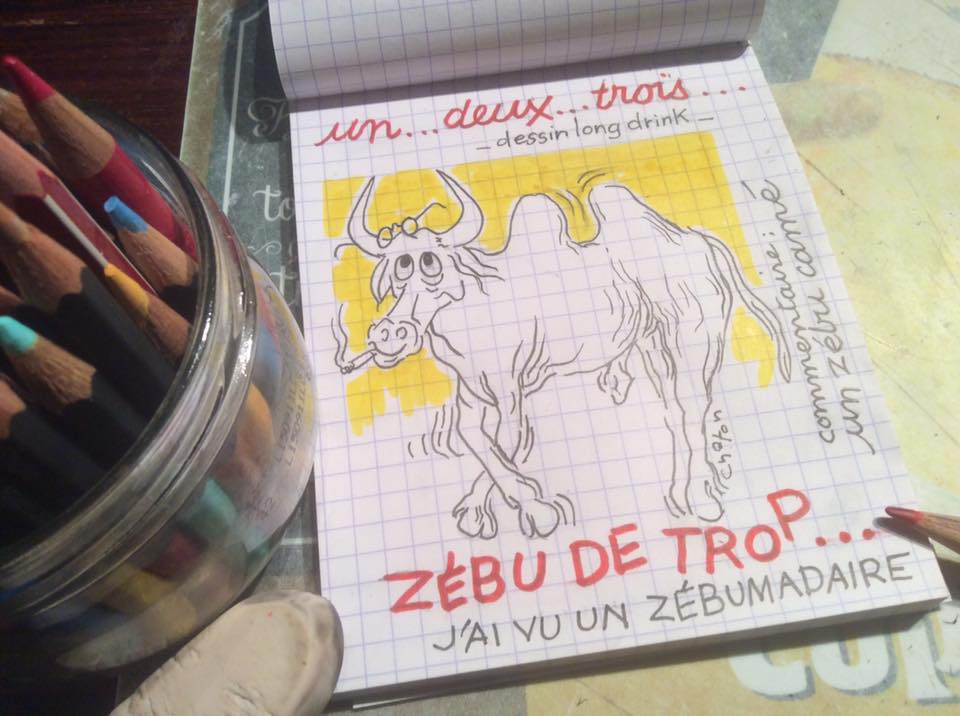 un...deux...troïs...
– dessin long drink –
commentaire :
un zébu carré
choton
ZÉBU DE TROP...
J'AI VU UN ZÉBUMADAIRE
to